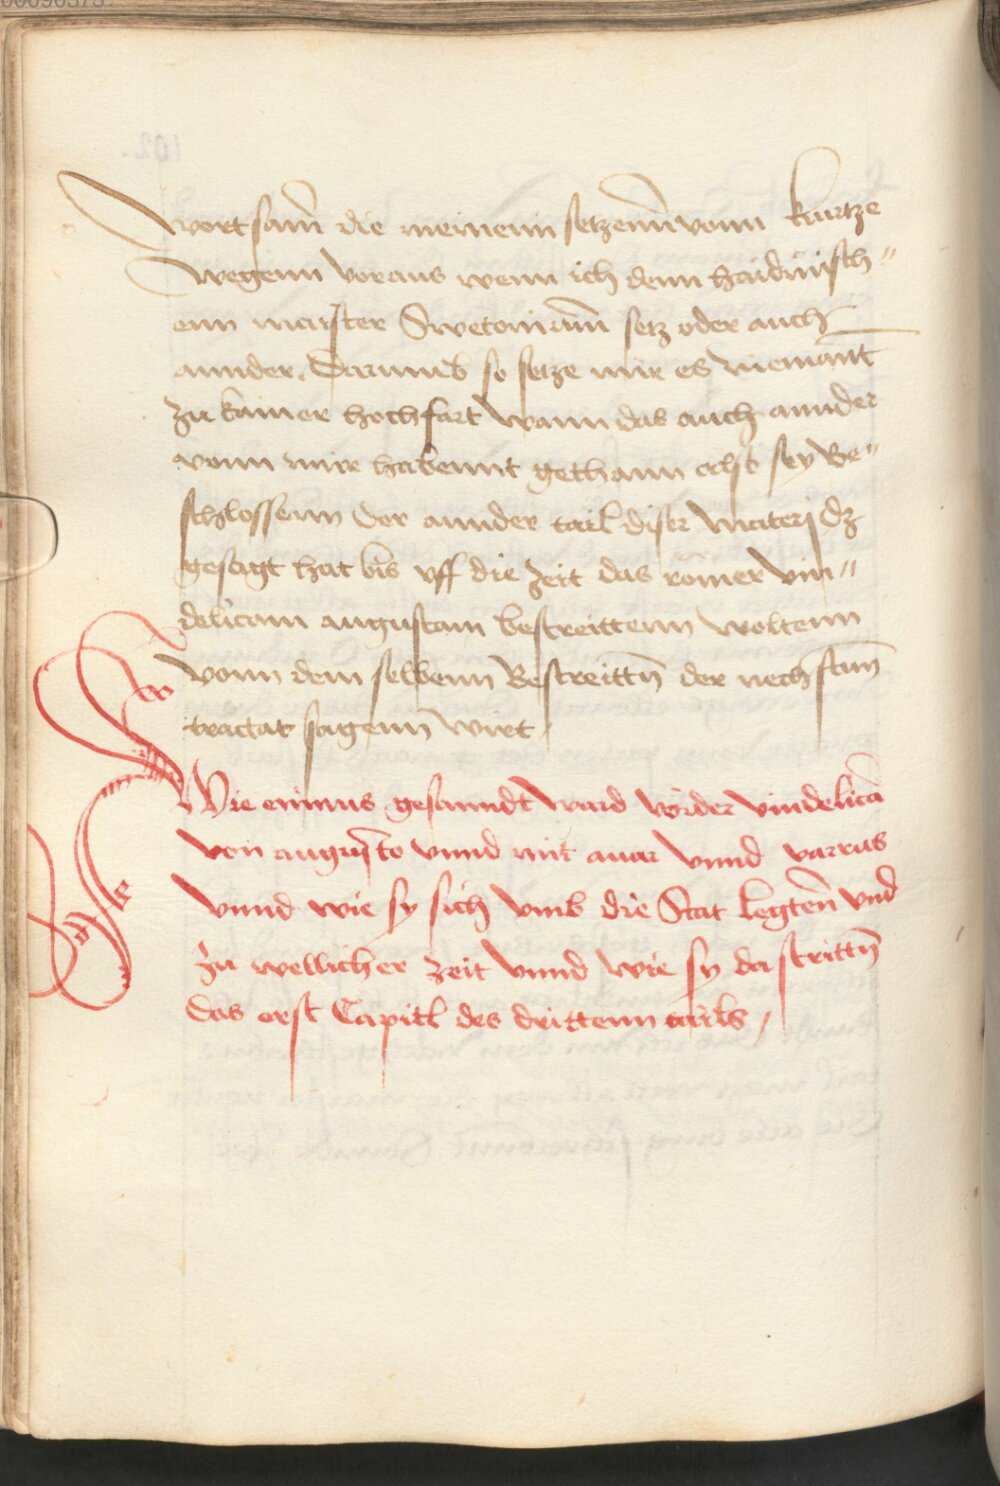 wort sam̃ die meinenn setzenn vonn kurtze
wegenn voraus wenn ich denn haidnisch"
enn maister Swetoniam̃ setz oder auch
annder. Darumb so setze mir es niemant̃
zu kainer hochfart wann das auch annder
vonn mir habennt gethann also sey Be"
schlossenn der annder tail diser materj dz
gesagt hat bis vff die zeit das romer vin"
delicam augustam bestreittenn woltenn
vonn dem selbenn Bestreittñ der nechstañ
tractat sagenn wirt /
Wie eninus gesanndt ward wider vindelicã
von augusto vnnd mit auar vnnd varrus
vnnd wie sy sich vmb die Stat legteñ vnd
zu wellicher zeit vnnd wie sy da strittñ
das erst Capitl des drittenn tails /